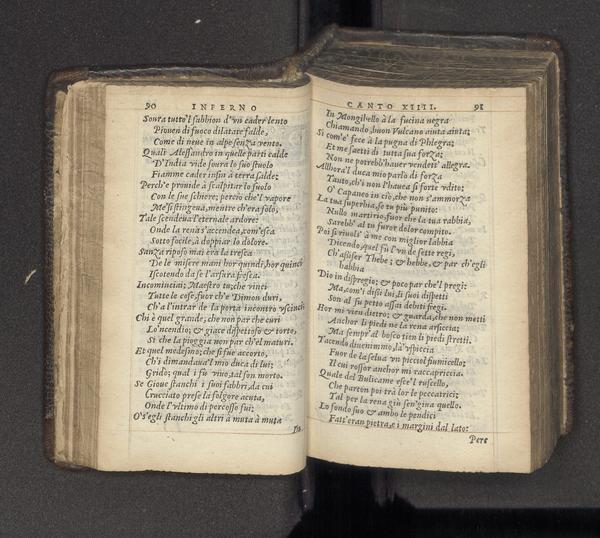 90 INFERNO
Soura tutto'l sabbion d'un cader lento
Piouen di fuoco dilatate falde,
Come di neue in alpe senza vento.
Quali Alessandro in quelle parti calde
D'India vide soura lo suo stuolo
Fiamme cader infin à terra salde;
Perch'e prouide à scalpitar lo suolo
Con le sue schiere; percio che'l vapore
Me' si stingeua, mentre ch'era solo,
Tale scendeua l'eternale ardore:
Onde la rena s'accendea, com'esca
Sotto focile, à doppiar lo dolore.
Sanza riposo mai era la tresca
De le misere mani hor quindi, hor quinci
Iscotendo da se l'arsura fresca.
Incominciai; Maestro tu, che vinci
Tutte le cose, fuor ch'e Dimon duri,
Ch'a l'intrar de la porta incontro vscinci
Chi è quel grande, che non par che curi
Lo'ncendio; & giace dispettoso & torto,
Si che la pioggia non par ch'el maturi.
Et quel medesmo; che si fue accorto,
Ch'i dimandaua'l mio duca di lui;
Gridò; qual i fu viuo, tal son morto.
Se Gioue stanchi i suoi fabbri, da cui
Crucciato prese la folgore acuta,
Onde l'vltimo di percosso fui;
O s'egli stanchi gli altri à muta à muta
In
CANTO XIIII. 91
In Mongibello à la fucina negra
Chiamando, buon Vulcano aiuta aiuta;
Si com'e' fece à la pugna di Phlegra;
Et me saetti di tutta sua forza;
Non ne potrebb'hauer vendett' allegra.
Allhora'l duca mio parlò di forza
Tanto, ch'i non l'hauea si forte vdito;
O' Capaneo in ciò, che non s'ammorza
La tua superbia, se tu più punito:
Nullo martirio, fuor che la tua rabbia,
Sarebb' al tu furor dolor compito.
Poi si riuols' à me con miglior labbia
Dicendo, quel fu l'vn de sette regi,
Ch'assiser Thebe; & hebbe, & par ch'egli
habbia
Dio in dispregio; & poco par che'l pregi:
Ma, com'i dissi lui, li suoi dispetti
Son al su petto assai debiti fregi.
Hor mi vien dietro; & guarda, che non metti
Anchor li piedi ne la rena arsiccia;
Ma sempr'al bosco tien li piedi stretti.
Tacendo diuenimmo, là 'vspiccia
Fuor de la selua vn picciol fiumicello;
Il cui rossor anchor mi raccapriccia.
Quale del Bulicame esce'l ruscello,
Che parton poi trà lor le peccatrici;
Tal per la rena giù sen'giua quello.
Lo fondo suo & ambo le pendici
Fatt'eran pietra, e i margini dal lato:
Perc